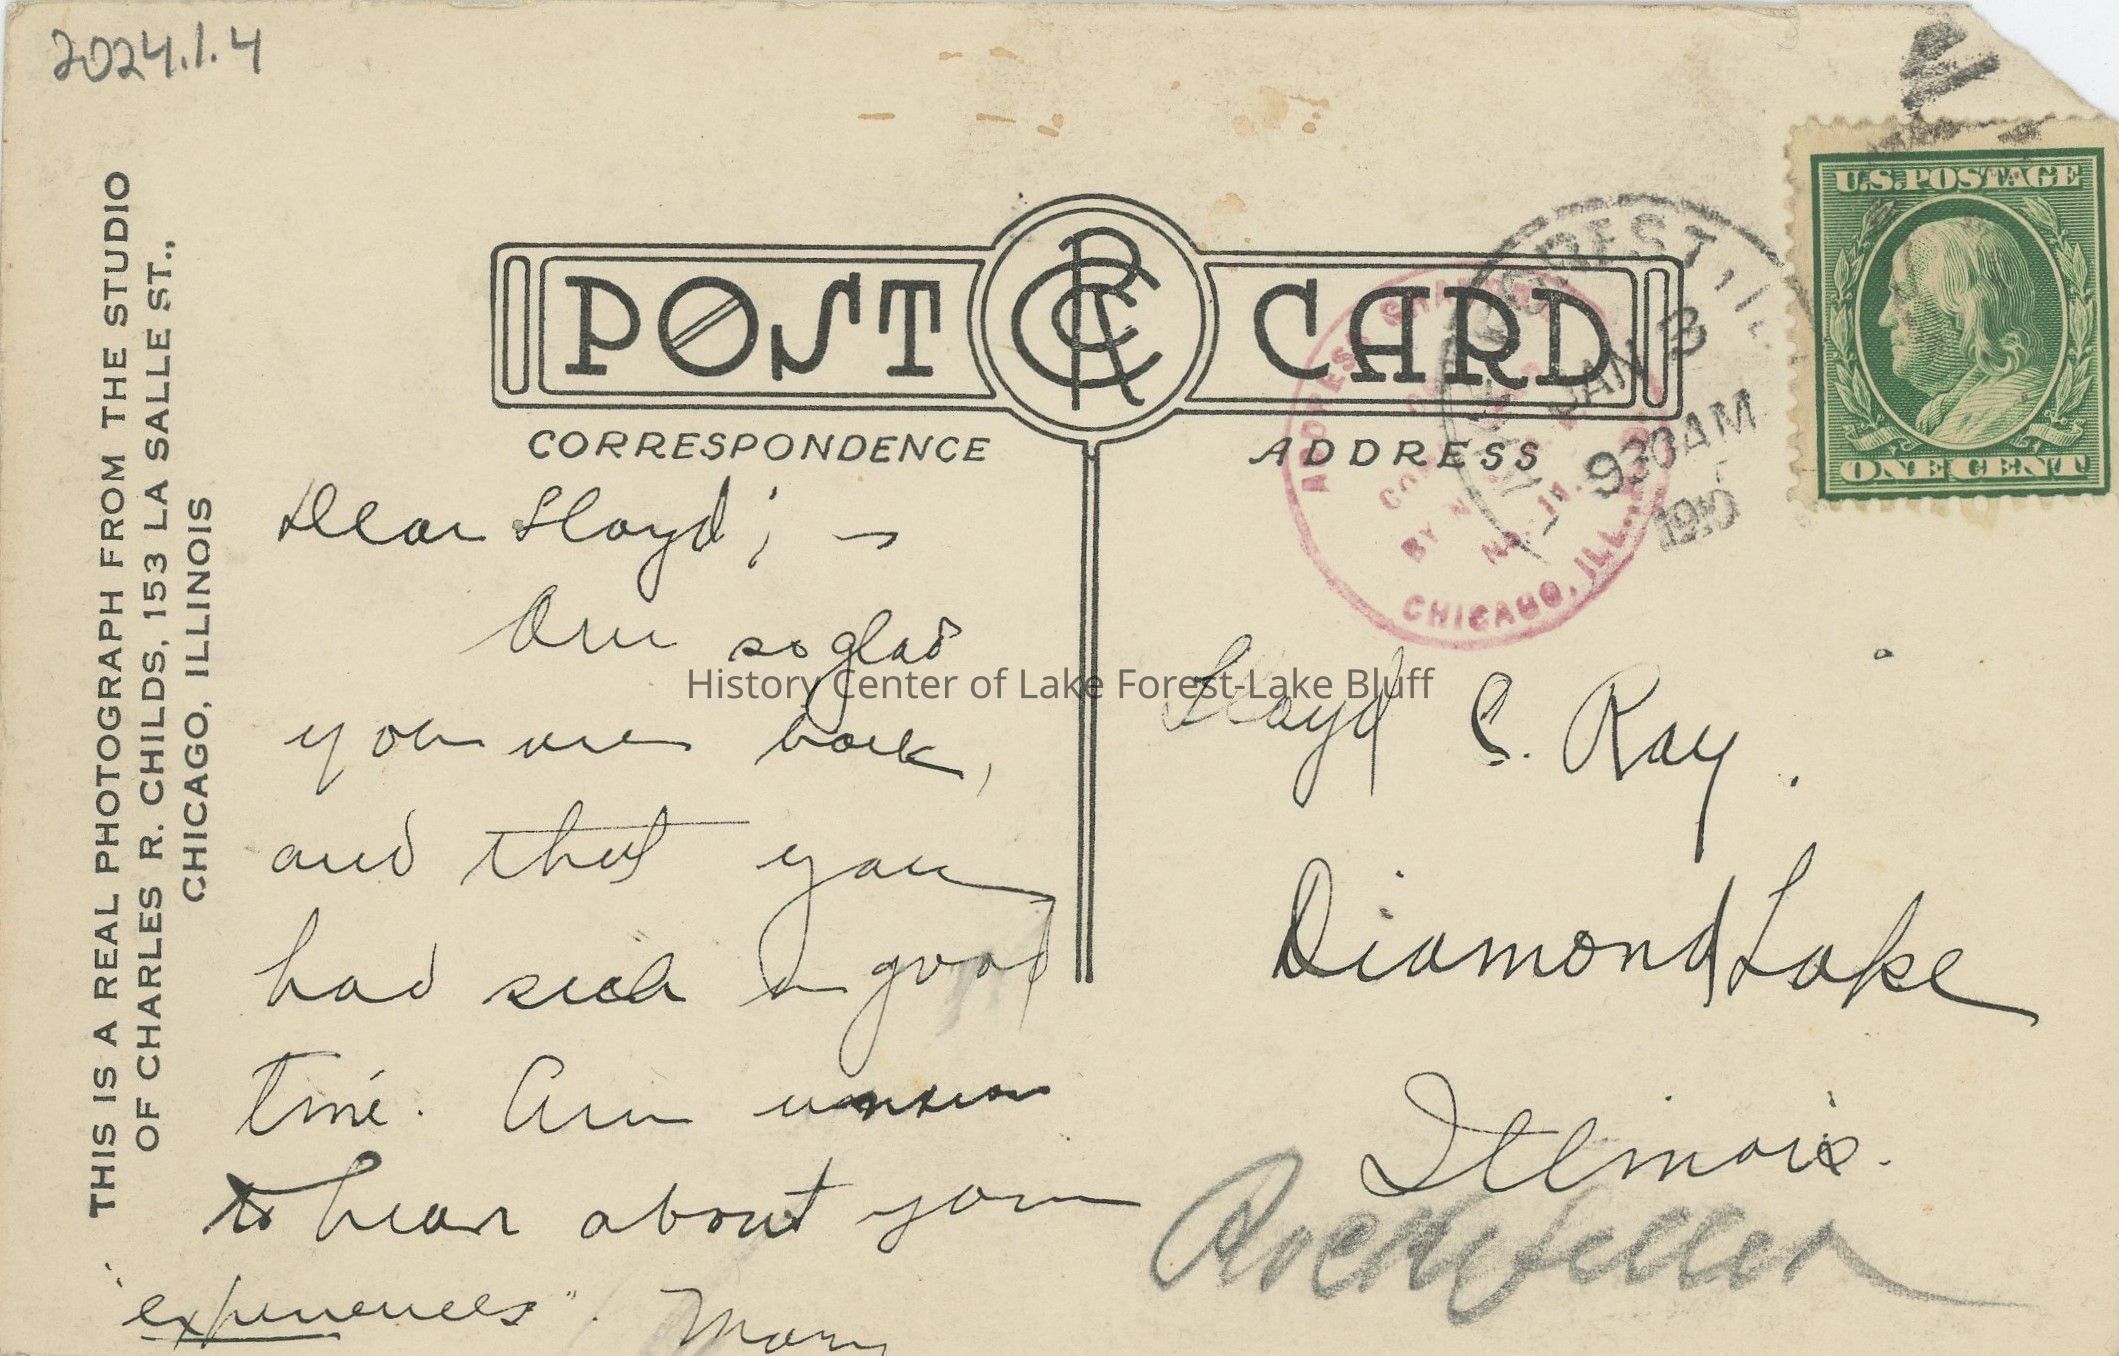 2024.1.4
THIS IS A REAL PHOTOGRAPH FROM THE STUDIO
OF CHARLES R. CHILDS, 153 LA SALLE ST.,
CHICAGO, ILLINOIS
POST CARD
CRC
CORRESPONDENCE
ADDRESS
U.S. POSTAGE
ONE CENT
FOREST, ILL
JAN 3
930AM
1910
ADDRESS
CO
BY
CHICAGO, ILL.
Dear Lloyd; –
Am so glad
you are back,
and that you
had such a good
time. Am
to hear about your
"experiences". Mary
Lloyd C. Ray.
Diamond Lake
Illinois.
Rockefeller
History Center of Lake Forest-Lake Bluff